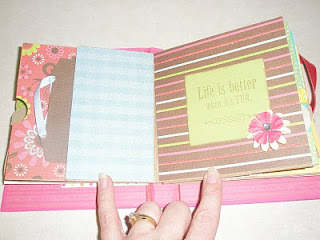 Life is better
when it's FUN.